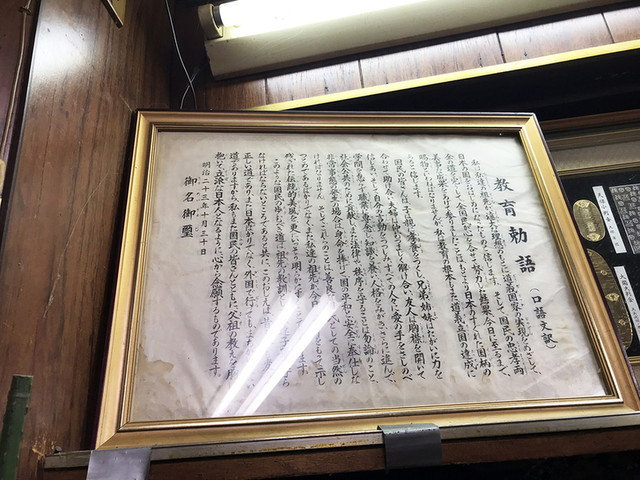 教育勅語（口語文訳）
私は私達の祖先が遠大な理想のもとに道義国家の実現をめざして、
日本の国をおはじめになったものと信じます。そして国民は忠孝両
全の道を全うして全国民が心を合わせて努力した結果今日に至るまで、
見事な成果をあげて参りましたことはもとより日本のすぐれた国柄の
賜物といわねばなりませんが私は教育の根本もまた道義立国の達成に
あると信じます。
国民の皆さんは子は親に孝養をつくし兄弟姉妹はたがいに力を
合わせて助け合い夫婦は仲むつまじく解け合い友人は胸襟を開いて
信じあいそして自分の言動をつつしみすべての人々に愛の手をさしのべ
学問を怠らず職業に専念し知識を養い人格をみがきさらに進んで、
社会公共のために貢献しまた法律や秩序を守ることは勿論のこと、
非常事態の発生の場合は身命を捧げて国の平和と安全に奉仕しな
ければなりません。そしてこれらのことは善良な国民としての当然の
つとめであるばかりでなくまた私達の祖先が今日まで身をもって示し
残された伝統的美風を更にいっそう明らかにすることでもあります。
このような国民の歩むべき道は祖先の教訓として私達子孫の守ら
なければならないところであると共にこのおしえは
正しい道でありまた日本ばかりでなく外国で行っても
道でありますから私もまた国民の皆さんとともに父祖の教えを胸に
抱いて立派な日本人となるように心から念願するものであります。
明治二十三年十月三十日
御名御璽